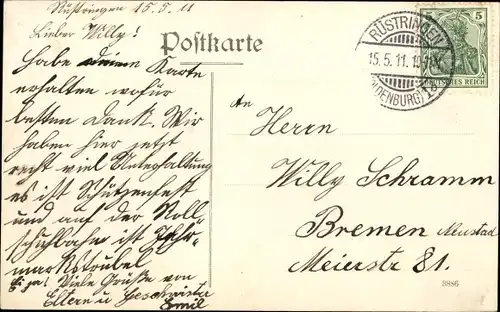 Rüstringen 15.5.11
Lieber Willy!
habe deinen Karte
erhalten wofür
besten Dank. Wir
haben hier jetzt
recht viel Unterhaltung
es ist Schützenfest
und auf der Roll-
schuhbahn ist Jahr-
markstrubel
Viele Grüße von
Eltern u Geschwister
Emil
Postkarte
RÜSTRINGEN
15.5.11.
(OLDENBURG)
5
DEUTSCHES REICH
An
Herrn
Willy Schramm
Bremen Neustad
Meierstr 81.
3886